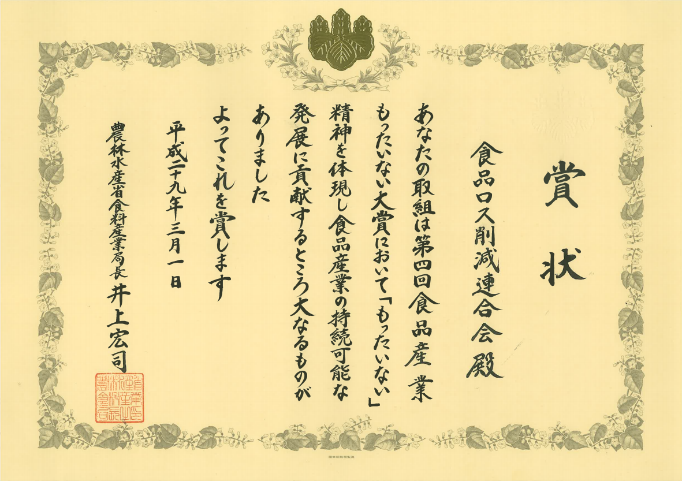 賞状
食品ロス削減連合会殿
あなたの取組は第四回食品産業
もったいない大賞において「もったいない」
精神を体現し食品産業の持続可能な
発展に貢献するところ大なるものが
ありました
よってこれを賞します
平成二十九年三月一日
農林水産省食料産業局長 井上宏司